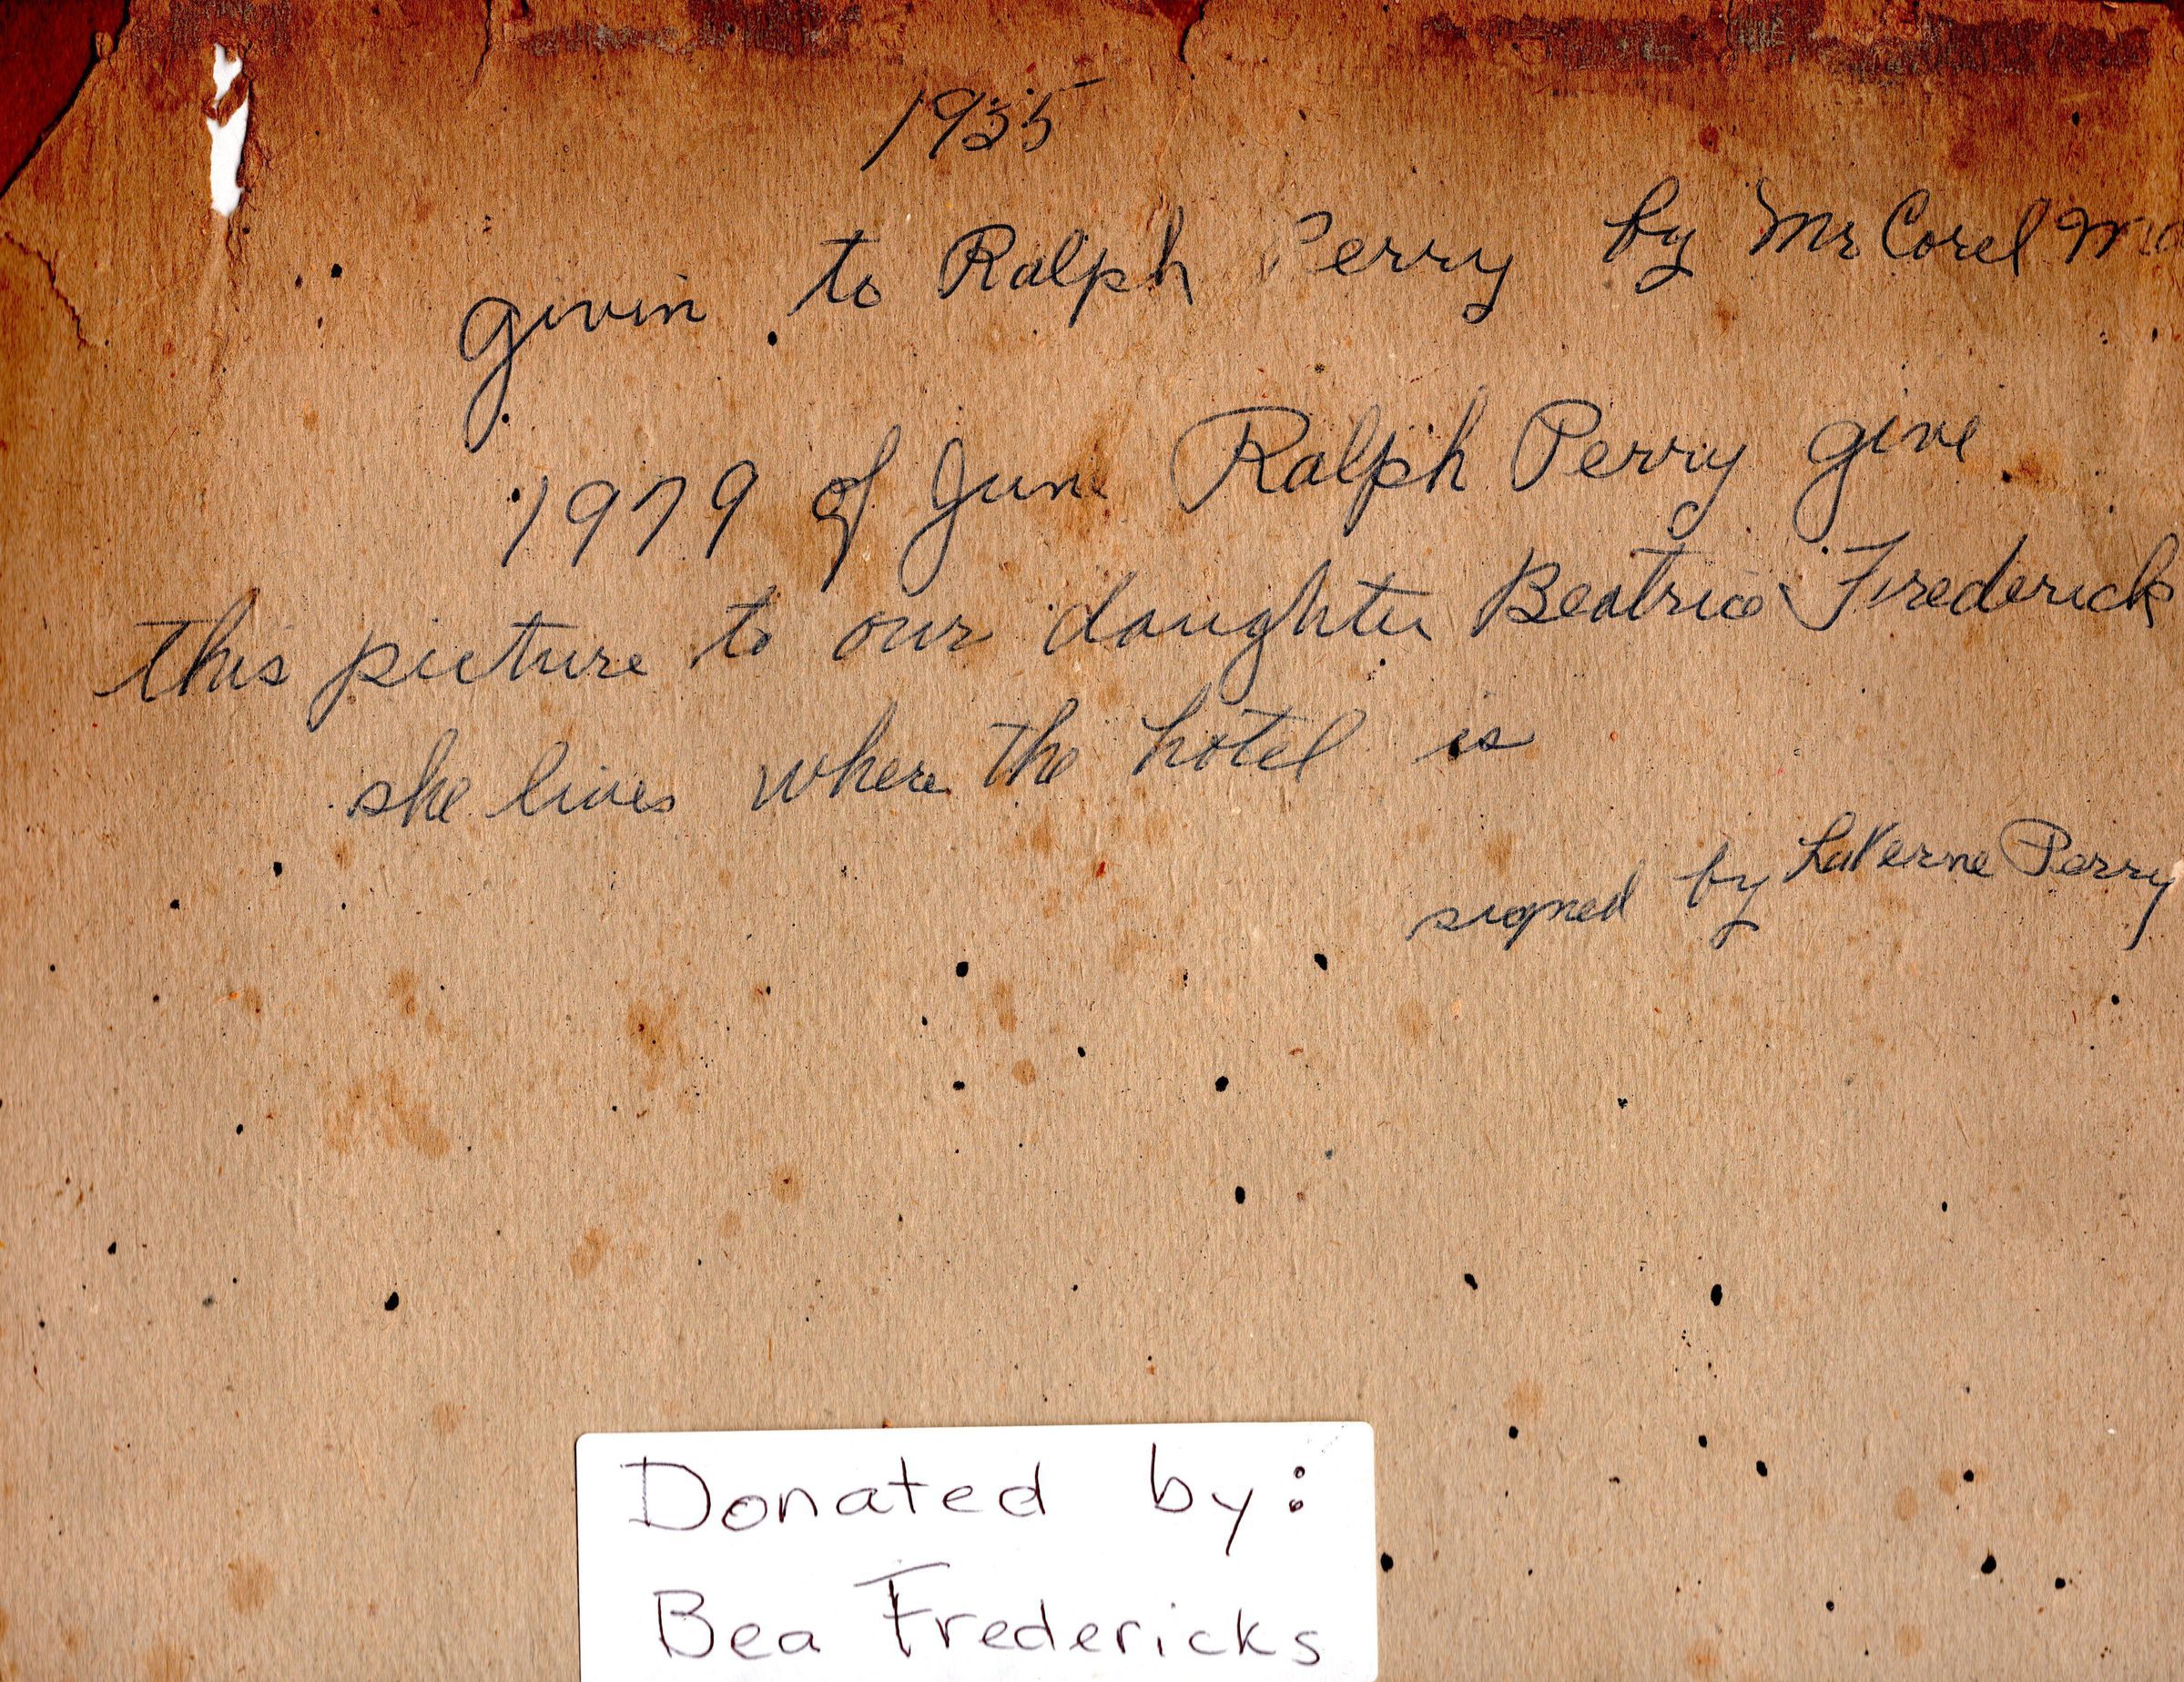 1935
givin to Ralph Perry by Mr Corel
1979 of June Ralph Perry give
this picture to our daughter Beatrice Frederick
she lives where the hotel is
signed by LaVerne Perry
Donated by:
Bea Fredericks